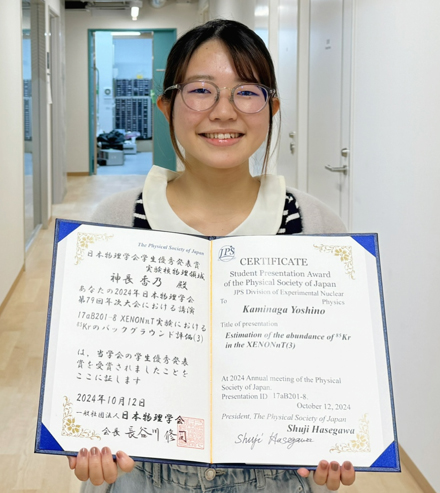 The Physical Society of Japan
日本物理学会学生優秀発表賞
実験核物理領域
神長香乃 殿
あなたの2024年日本物理学会
第79回年次大会における講演
17aB201-8 XENONnT実験における
⁸⁵Krのバックグラウンド評価(3)
は、当学会の学生優秀発表
賞を受賞されましたことを
ここに証します
2024年10月12日
一般社団法人日本物理学会
会長 長谷川 修司
JPS
CERTIFICATE
Student Presentation Award
of the Physical Society of Japan
JPS Division of Experimental Nuclear
Physics
To
Kaminaga Yoshino
Title of presentation
Estimation of the abundance of ⁸⁵Kr
in the XENONnT(3)
At 2024 Annual meeting of the Physical
Society of Japan.
Presentation ID 17aB201-8.
October 12, 2024
President, The Physical Society of Japan
Shuji Hasegawa
Shuji Hasegawa